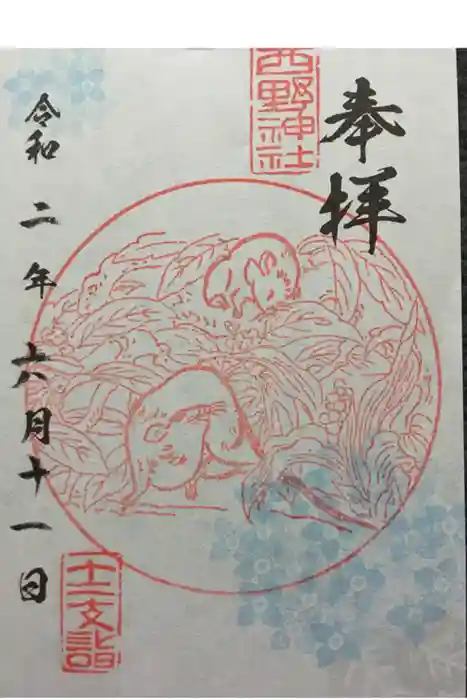 奉拝
西野神社
令和二年六月十一日
十二支詣